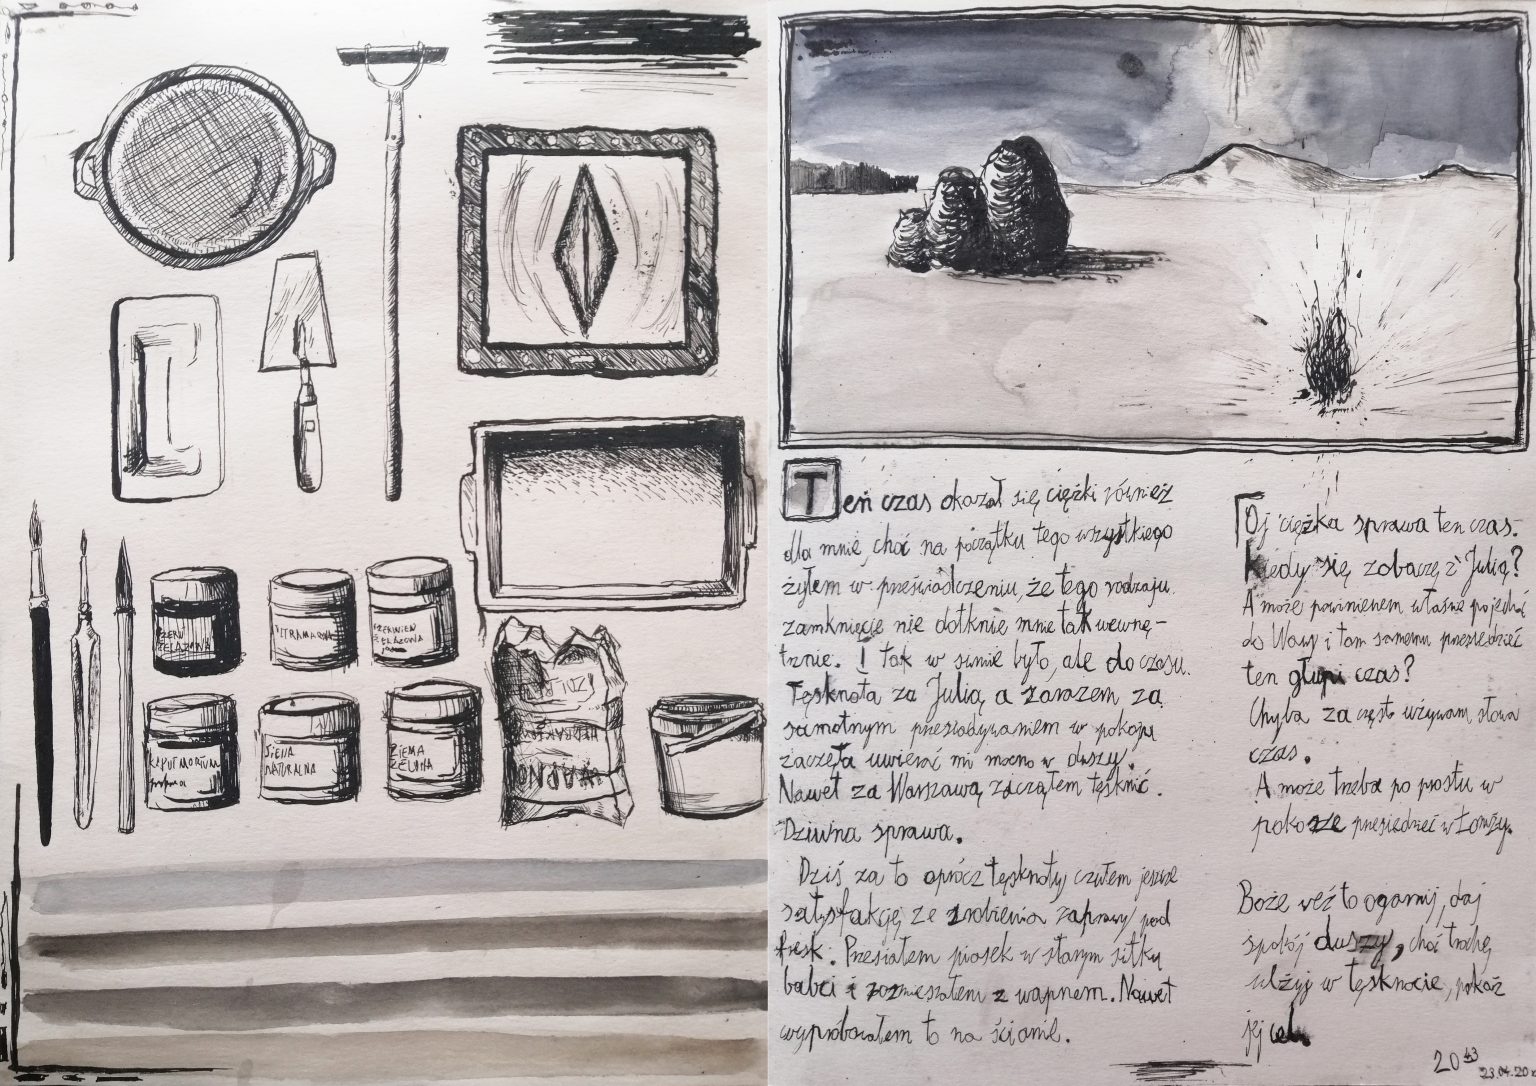 CZERŃ
ŻELAZOWA
ULTRAMARYNA
CZERWIEŃ
ŻELAZOWA
KAPUT MORTUM
SIENA
NATURALNA
ZIEMA
ZELONA
WAPNO
Ten czas okazał się ciężki również
dla mnie, choć na początku tego wszystkiego
żyłem w przeświadczeniu, że tego rodzaju
zamknięcie nie dotknie mnie tak wewnę-
trznie. I tak w sumie było, ale do czasu.
Tęsknota za Julią a zarazem za
samotnym przesiadywaniem w pokoju
zaczęła uwierać mi mocno w duszy.
Nawet za Warszawą zacząłem tęsknić.
Dziwna sprawa.
Dziś za to oprócz tęsknoty czułem jeszcze
satysfakcję ze zrobienia zaprawy pod
fresk. Przesiałem piasek w starym sitku
babci i rozmieszałem z wapnem. Nawet
wypróbowałem to na ścianie.
Oj ciężka sprawa ten czas.
Kiedy się zobaczę z Julią?
A może powinienem właśnie pojechać
do Wawy i tam samemu przesiedzieć
ten głupi czas?
Chyba za często używam słowa
czas.
A może trzeba po prostu w
pokorze przesiedzieć w Łomży.
Boże weź to ogarnij, daj
spokój duszy, choć trochę
ulżyj w tęsknocie, pokaż
jej cel.
20 43
23.04.20